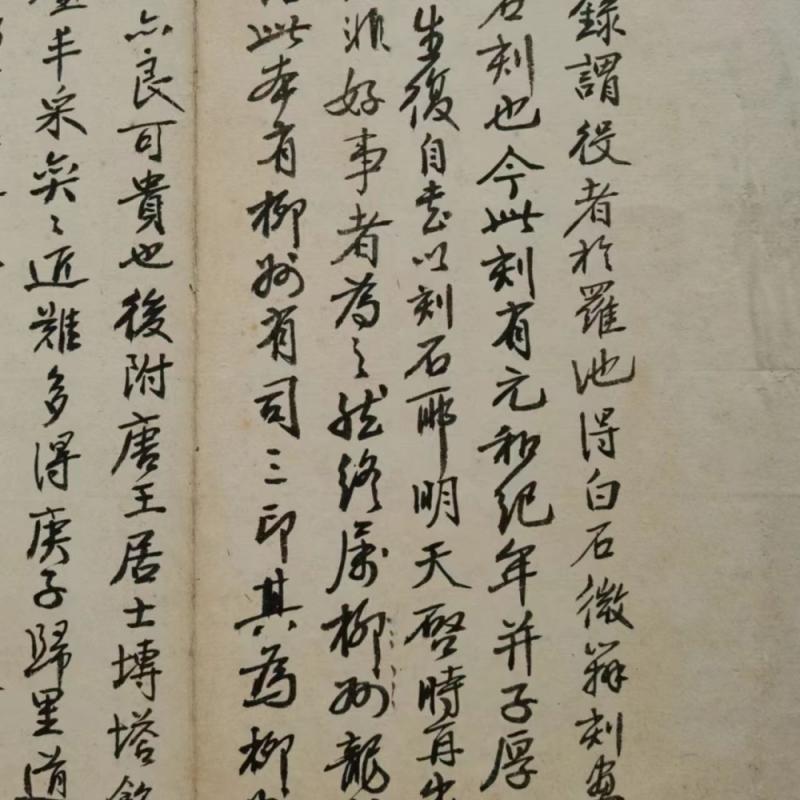 錄謂役者於羅池得白石微辨刻畫
石刻也今此刻有元和紀年并子厚
生復自書以刻石耶明天啓時再出
非好事者為之然終屬柳州龍
此本有柳州有司三印其為柳
亦良可貴也後附唐王居士塼塔銘
豐采奕〻近難多得庚子歸里道